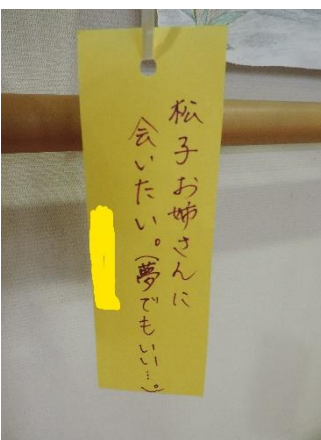 松子お姉さんに
会いたい。(夢でもいい…。)